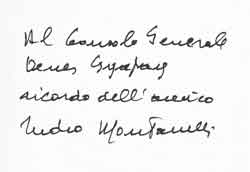 Al Console Generale
Denes Gyapay
ricordo dell'amico
Indro Montanelli